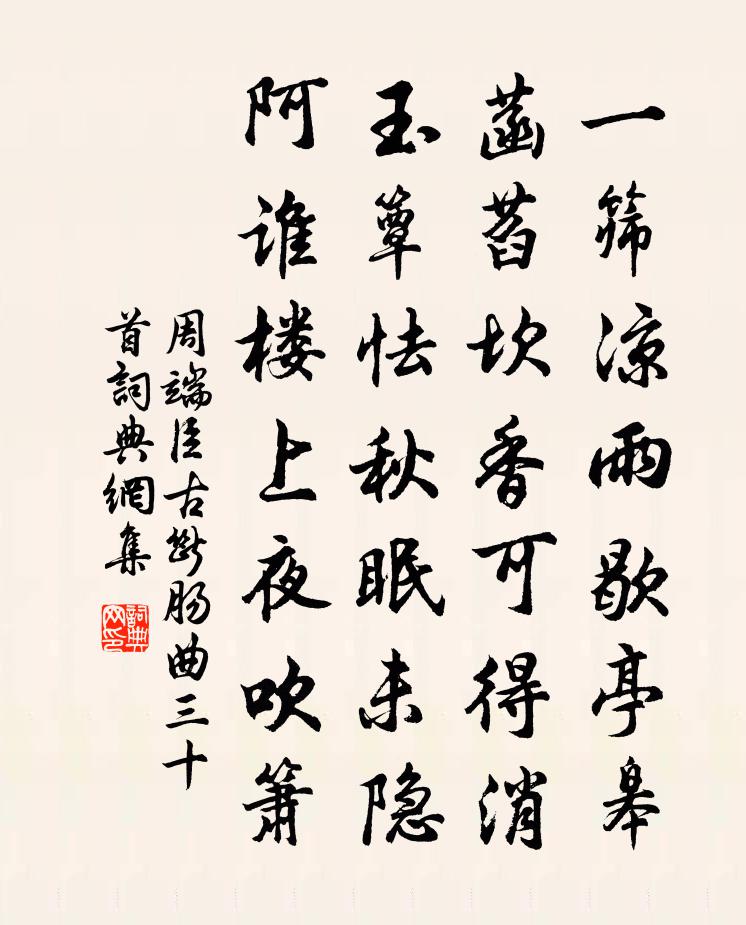 一筛凉雨歇亭皋
菡萏坎香可得消
玉簟怯秋眠未隐
阿谁楼上夜吹箫
周端臣古断肠曲三十
首詞典網集
詞典網印